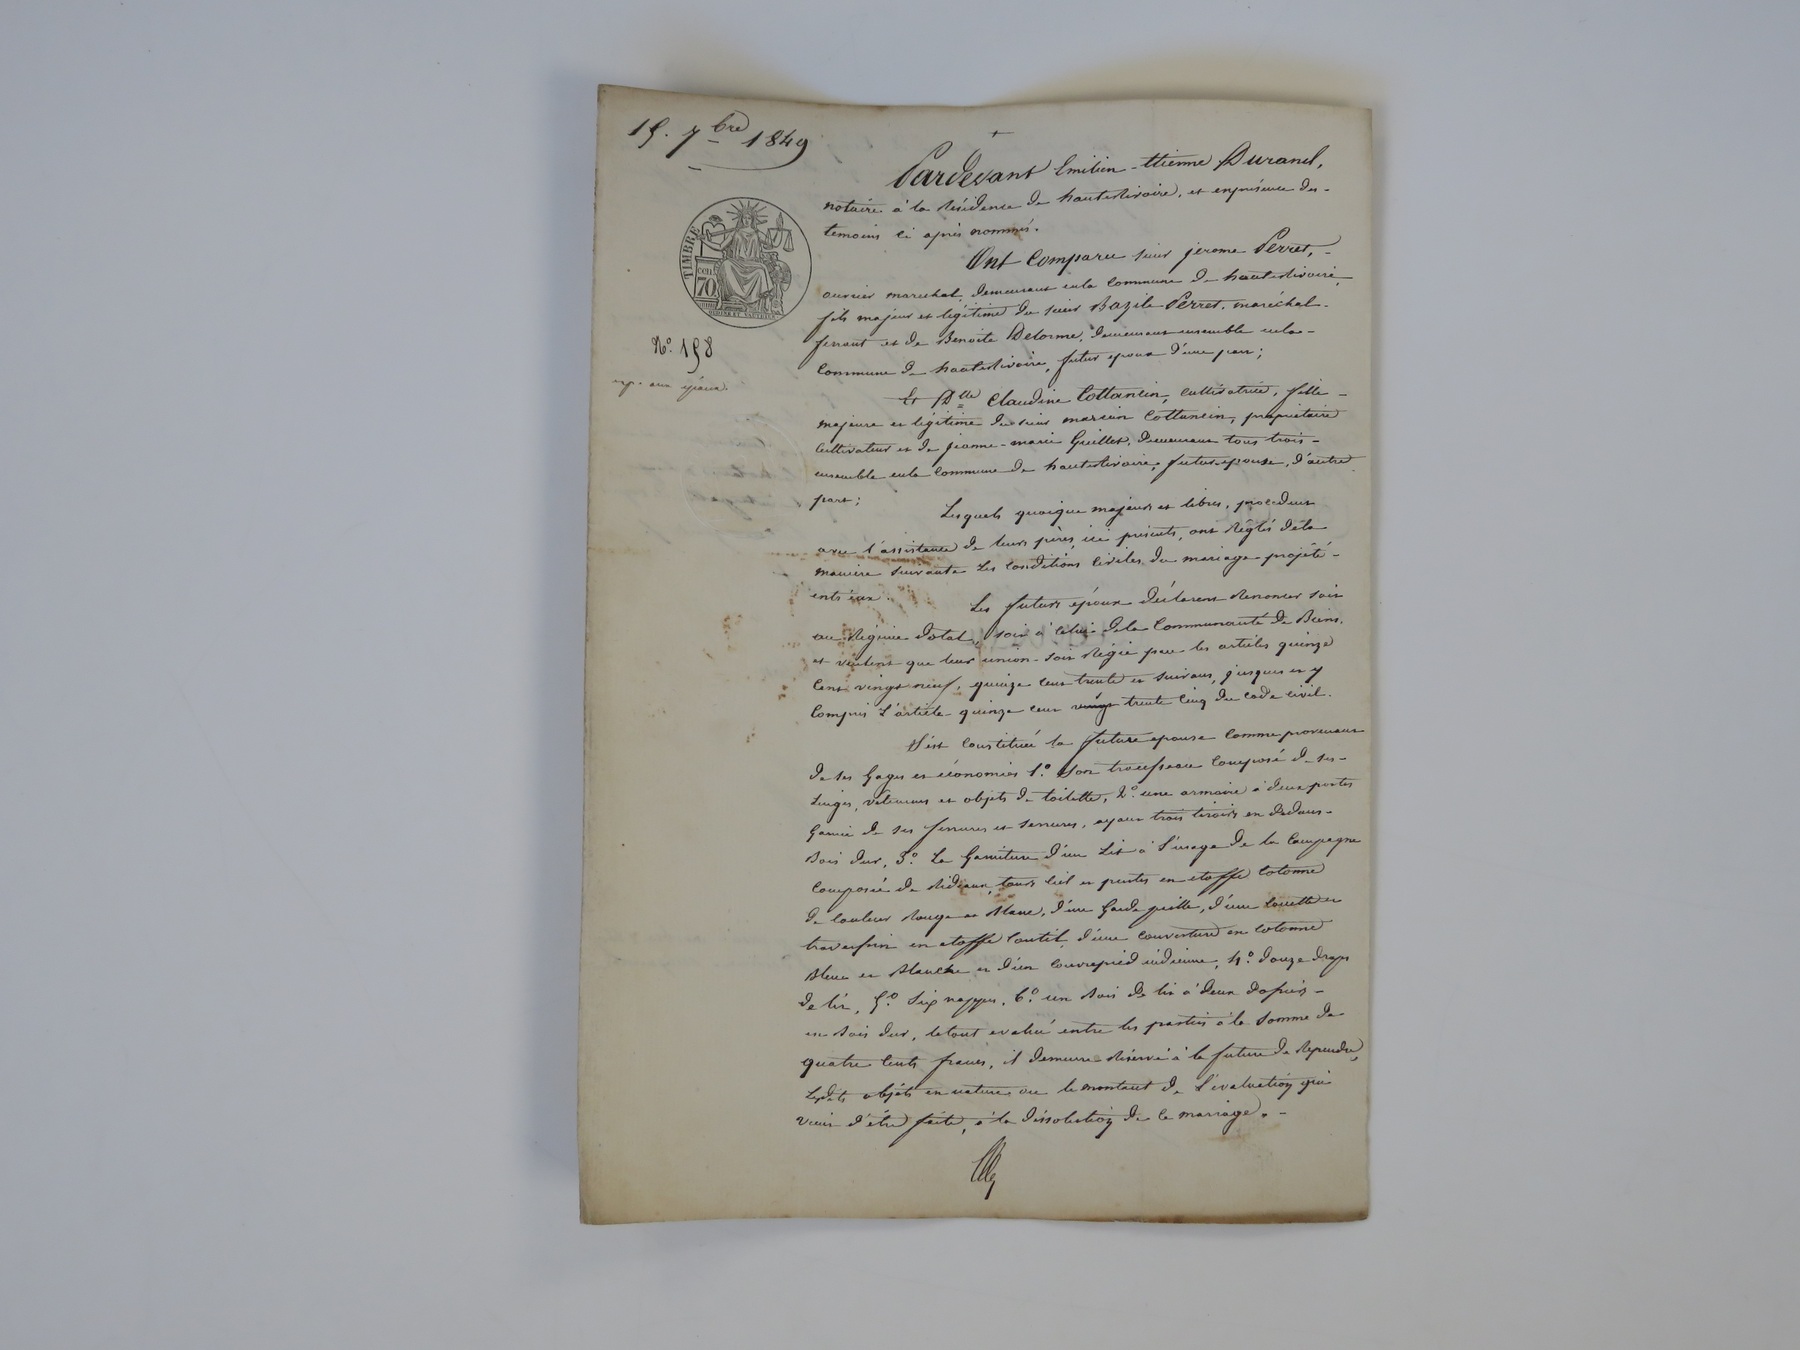 15. 7bre 1849
Pardevant Emilien-Etienne Durand,
notaire à la Résidence de hauterivoire, et en présence des-
témoins ci après nommés.
TIMBRE
CEN.
70
Ont Comparu sieur jerome Perret,-
ouvrier marechal, demeurant en la Commune de hauterivoire,
fils majeur et légitime du sieur Bazile Perret, maréchal-
ferrant et de Benoite Delorme, demeurant ensemble en la-
Commune de hauterivoire, futur epoux d'une part;
N° 158
exp. aux époux.
Et Dlle Claudine Cottancin, cultivatrice, fille-
majeure et légitime du sieur Cottancin, propriétaire
Cultivateur et de jeanne-marie Guillet, demeurant tous trois-
ensemble en la Commune de hauterivoire, future epouse, d'autre
part;
Lesquels quoique majeurs et libres, procédant
avec l'assistance de leurs pères, ici présents, ont Réglés de la
manière suivante Les Conditions Civiles du mariage projété-
entr'eux.
Les futurs époux déclarent Renoncer soit
au Régime dotal, soit à celui de la Communauté de Biens,
et veulent que leur union soit Régie par les articles quinze
Cent vingt neuf, quinze cent trente et suivans, jusques et y
Compris L'article quinze cent vingt trente cinq du code civil.
S'est Constituée la future epouse comme provenant
de ses Gages et économies 1.° Son trousseau Composé de ses-
Linges, vêtemens et objets de toilette, 2.° une armoire à deux portes
Garnie de ses ferrures et serrures, ayant trois tiroirs en dedans-
Bois dur, 3.° La Garniture d'un Lit à l'usage de la Campagne
Composée de Rideaux, tours ciel et pentes en etoffe Cotonne
de Couleur Rouge et Blanc, d'une Garde paille, d'une Couette et
traversin en etoffe Coutil d'une couverture en Cotonne
Bleue et Blanche et d'un Couvrepied indienne, 4.° douze draps
de lit, 5.° Six nappes, 6.° un Bois de lit à deux dossiers-
en Bois dur, le tout evalué entre les parties à la Somme de
quatre Cents francs, il demeure Réservé à la future de Reprendre,
Lesdits objets en nature ou le montant de L'évaluation qui
vient d'être faite, à la dissolution de ce mariage.-